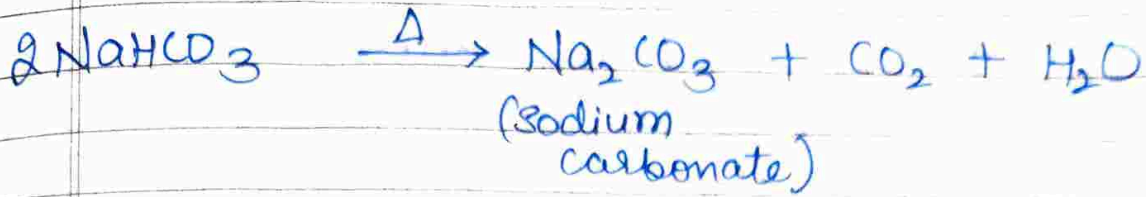 2NaHCO₃ —Δ→ Na₂CO₃ + CO₂ + H₂O
(sodium
carbonate)